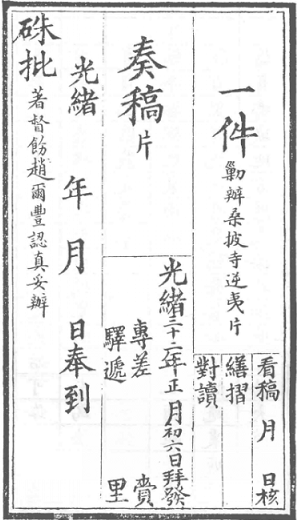 一件 勦辦桑披寺逆夷片
看稿 月 日核
繕摺
對讀
奏稿 片
光緒三十二年正月初六日拜發
專差 賫
驛遞 里
光緒 年 月 日奉到
硃批 著督飭趙爾豐認真妥辦